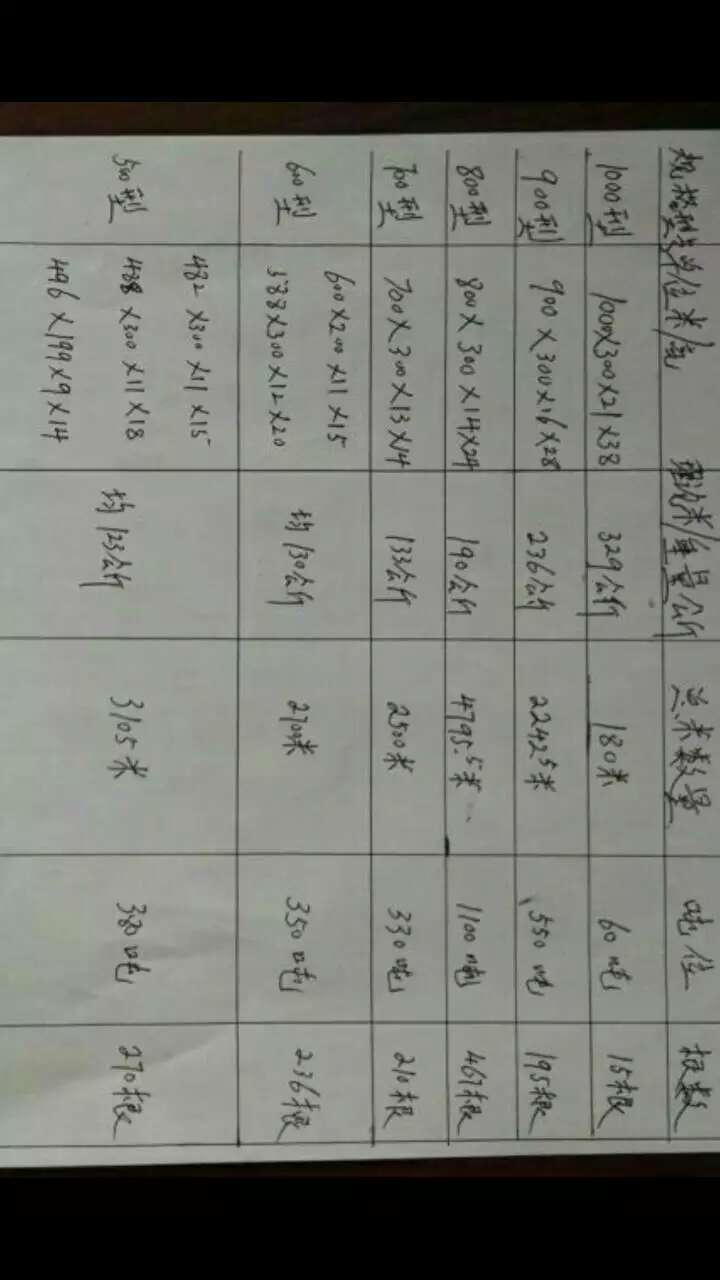 规格型号 单位米/毫 理论米/重量公斤 总米数量 吨位 根数
1000型 1000×300×21×38 329公斤 180米 60吨 15根
900型 900×300×16×28 236公斤 2242.5米 550吨 195根
800型 800×300×14×24 190公斤 4795.5米 1100吨 467根
700型 700×300×13×14 133公斤 2500米 330吨 210根
600型 600×200×11×15 均130公斤 2700米 350吨 236根
588×300×12×20
500型 482×300×11×15 均123公斤 3105米 380吨 270根
488×300×11×18
496×199×9×14